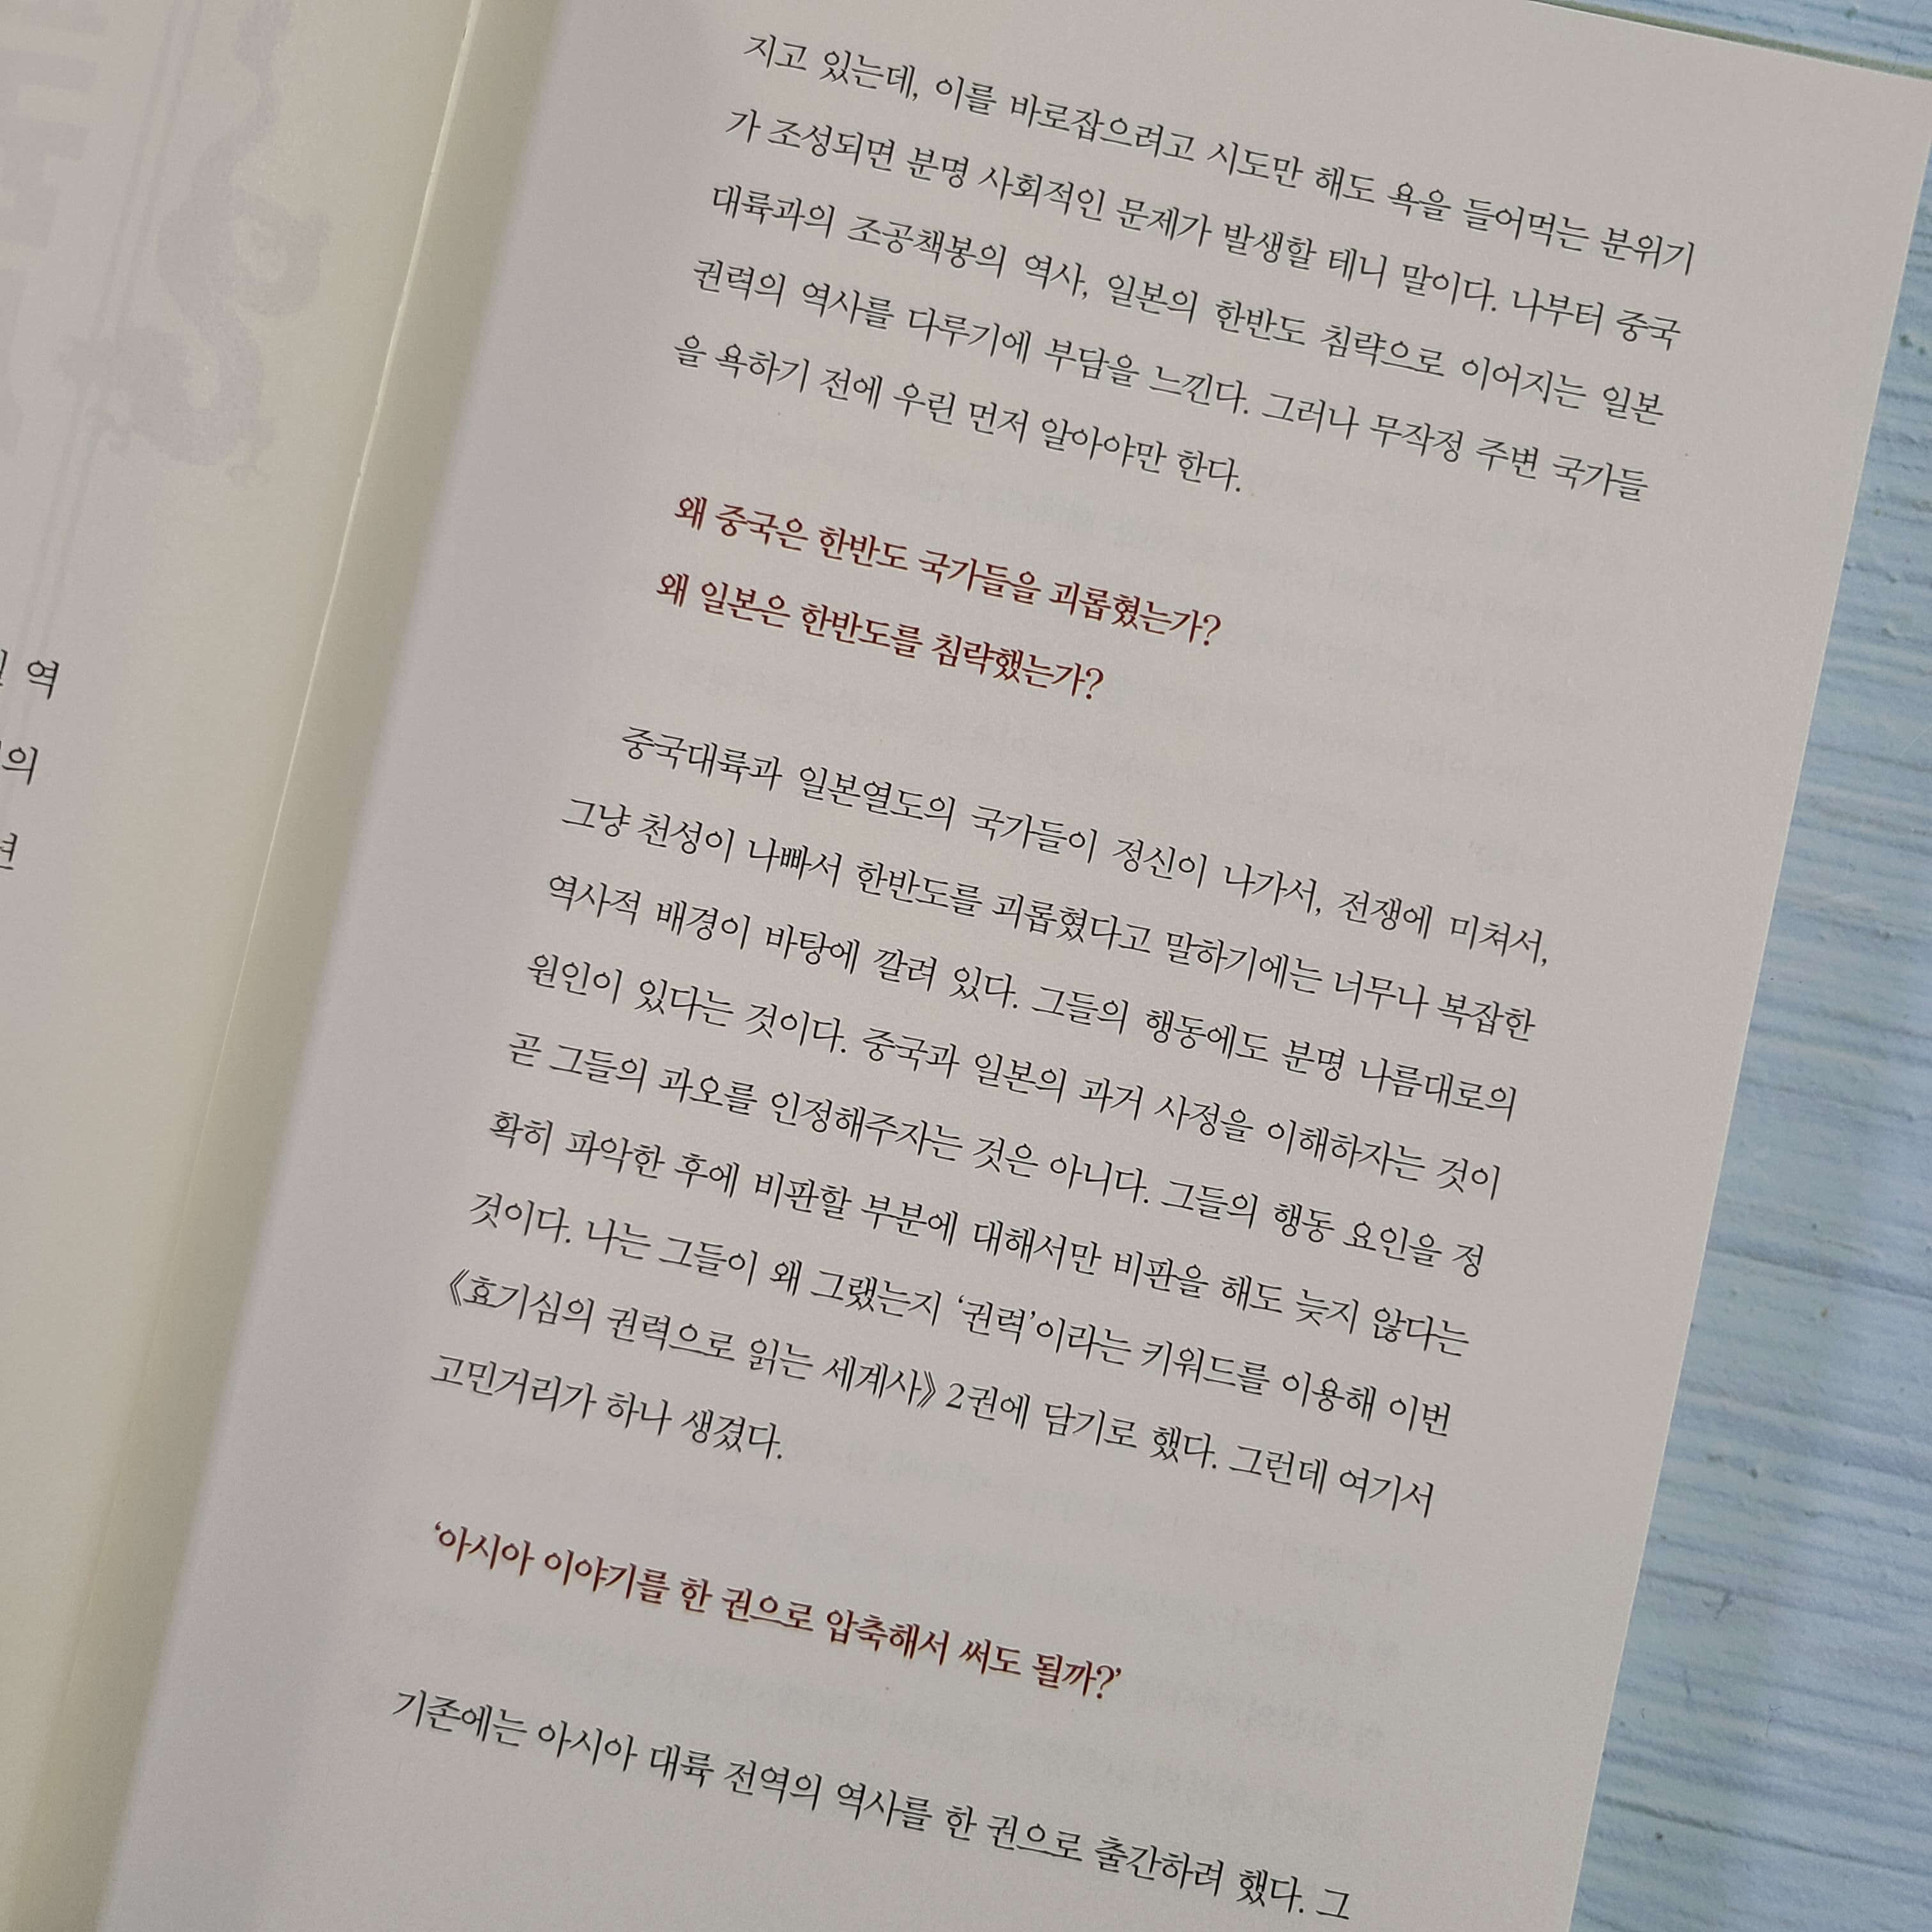 역
의
지고 있는데, 이를 바로잡으려고 시도만 해도 욕을 들어먹는 분위기
가 조성되면 분명 사회적인 문제가 발생할 테니 말이다. 나부터 중국
대륙과의 조공책봉의 역사, 일본의 한반도 침략으로 이어지는 일본
권력의 역사를 다루기에 부담을 느낀다. 그러나 무작정 주변 국가들
을 욕하기 전에 우린 먼저 알아야만 한다.
왜 중국은 한반도 국가들을 괴롭혔는가?
왜 일본은 한반도를 침략했는가?
중국대륙과 일본열도의 국가들이 정신이 나가서, 전쟁에 미쳐서,
그냥 천성이 나빠서 한반도를 괴롭혔다고 말하기에는 너무나 복잡한
역사적 배경이 바탕에 깔려 있다. 그들의 행동에도 분명 나름대로의
원인이 있다는 것이다. 중국과 일본의 과거 사정을 이해하자는 것이
곧 그들의 과오를 인정해주자는 것은 아니다. 그들의 행동 요인을 정
확히 파악한 후에 비판할 부분에 대해서만 비판을 해도 늦지 않다는
것이다. 나는 그들이 왜 그랬는지 ‘권력’이라는 키워드를 이용해 이번
《효기심의 권력으로 읽는 세계사》 2권에 담기로 했다. 그런데 여기서
고민거리가 하나 생겼다.
‘아시아 이야기를 한 권으로 압축해서 써도 될까?’
기존에는 아시아 대륙 전역의 역사를 한 권으로 출간하려 했다. 그